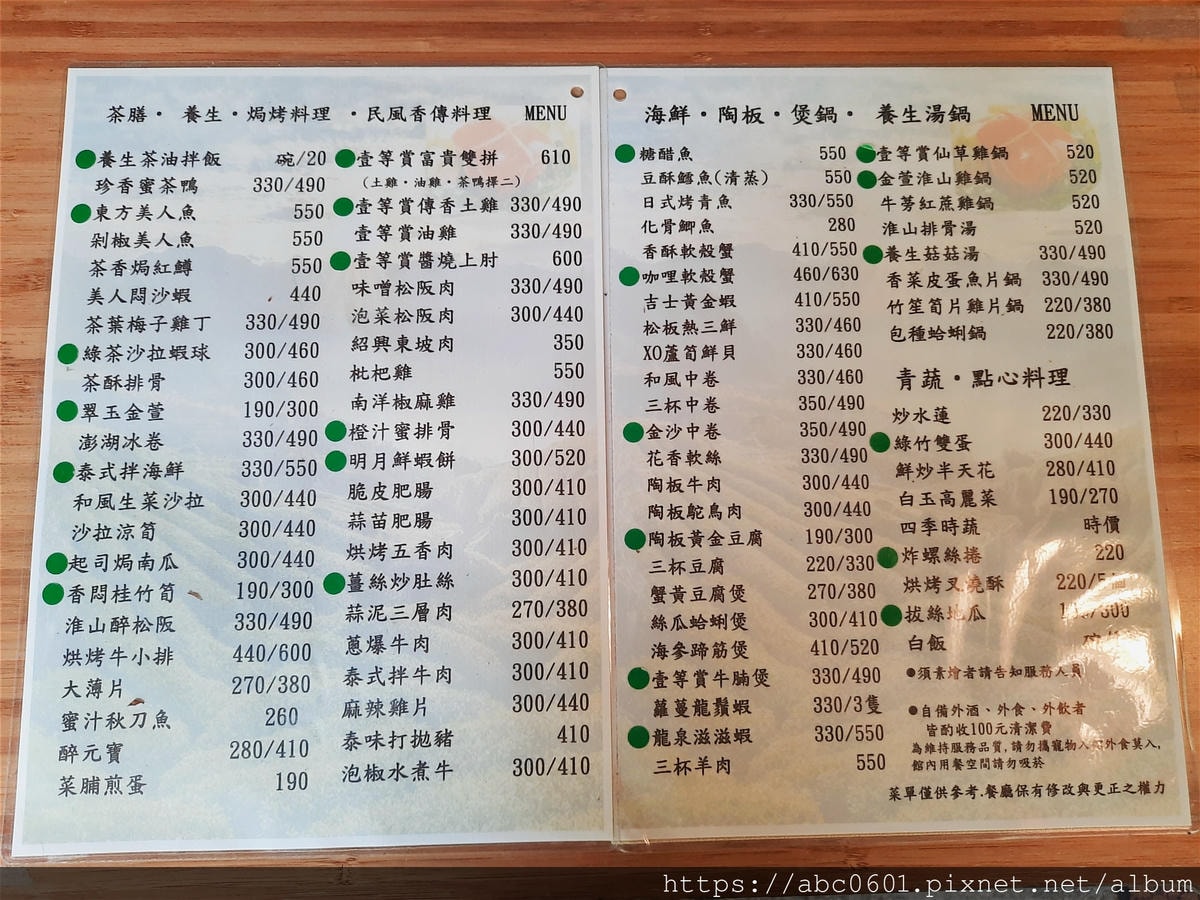 茶膳・養生・焗烤料理・民風香傳料理 MENU
養生茶油拌飯 碗/20
珍香蜜茶鴨 330/490
東方美人魚 550
剁椒美人魚 550
茶香焗紅鱒 550
美人悶沙蝦 440
茶葉梅子雞丁 330/490
綠茶沙拉蝦球 300/460
茶酥排骨 300/460
翠玉金萱 190/300
澎湖冰卷 330/490
泰式拌海鮮 330/550
和風生菜沙拉 300/440
沙拉涼筍 300/440
起司焗南瓜 300/440
香悶桂竹筍 190/300
淮山醉松阪 330/490
烘烤牛小排 440/600
大薄片 270/380
蜜汁秋刀魚 260
醉元寶 280/410
菜脯煎蛋 190
壹等賞富貴雙拼 610
(土雞・油雞・茶鴨擇二)
壹等賞傳香土雞 330/490
壹等賞油雞 330/490
壹等賞醬燒上肘 600
味噌松阪肉 330/490
泡菜松阪肉 300/440
紹興東坡肉 350
枇杷雞 550
南洋椒麻雞 330/490
橙汁蜜排骨 300/440
明月鮮蝦餅 300/520
脆皮肥腸 300/410
蒜苗肥腸 300/410
烘烤五香肉 300/410
薑絲炒肚絲 300/410
蒜泥三層肉 270/380
蔥爆牛肉 300/410
泰式拌牛肉 300/410
麻辣雞片 300/440
泰味打拋豬 410
泡椒水煮牛 300/410
海鮮・陶板・煲鍋・養生湯鍋 MENU
糖醋魚 550
豆酥鱈魚(清蒸) 550
日式烤青魚 330/550
化骨鯽魚 280
香酥軟殼蟹 410/550
咖哩軟殼蟹 460/630
吉士黃金蝦 410/550
松板熱三鮮 330/460
XO蘆筍鮮貝 330/460
和風中卷 330/460
三杯中卷 350/490
金沙中卷 350/490
花香軟絲 330/490
陶板牛肉 300/440
陶板鴕鳥肉 300/440
陶板黃金豆腐 190/300
三杯豆腐 220/330
蟹黃豆腐煲 270/380
絲瓜蛤蜊煲 300/410
海參蹄筋煲 410/520
壹等賞牛腩煲 330/490
蘿蔓龍鬚蝦 330/3隻
龍泉滋滋蝦 330/550
三杯羊肉 550
壹等賞仙草雞鍋 520
金萱淮山雞鍋 520
牛蒡紅蔗雞鍋 520
淮山排骨湯 520
養生菇菇湯 330/490
香菜皮蛋魚片鍋 330/490
竹笙筍片雞片鍋 220/380
包種蛤蜊鍋 220/380
青蔬・點心料理
炒水蓮 220/330
綠竹雙蛋 300/440
鮮炒半天花 280/410
白玉高麗菜 190/270
四季時蔬 時價
炸螺絲捲 220
烘烤叉燒酥
拔絲地瓜
白飯
●須素燴者請告知服務人員
●自備外酒、外食、外飲者
皆酌收100元清潔費
為維持服務品質,請勿攜寵物入 外食莫入,
館內用餐空間請勿吸菸
菜單僅供參考.餐廳保有修改與更正之權力
https://abc0601.pixnet.net/album